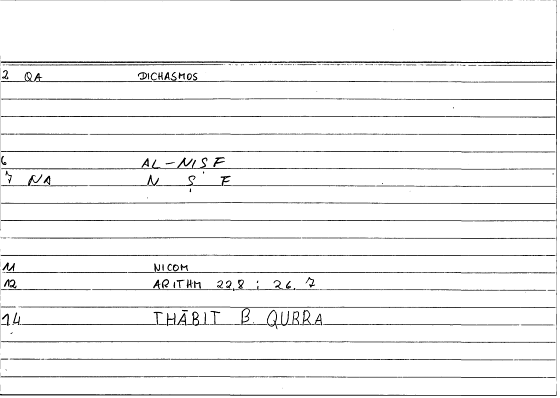 2 QA DICHASMOS
6 AL-NIṢF
7 NA N Ṣ F
11 NICOM
12 ARITHM 22,8 ; 26, 7
14 THĀBIT B. QURRA